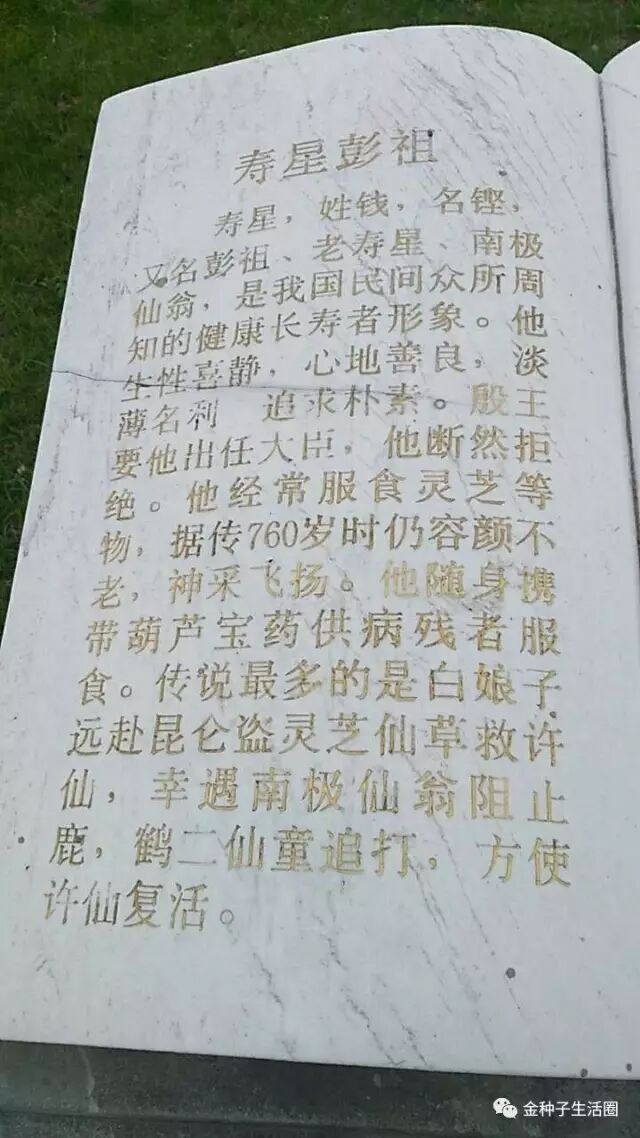 寿星彭祖
寿星，姓钱，名铿，
又名彭祖、老寿星、南极
仙翁，是我国民间众所周
知的健康长寿者形象。他
生性喜静，心地善良，淡
薄名利 追求朴素。殷王
要他出任大臣，他断然拒
绝。他经常服食灵芝等
物，据传760岁时仍容颜不
老，神采飞扬。他随身携
带葫芦宝药供病残者服
食。传说最多的是白娘子
远赴昆仑盗灵芝仙草救许
仙，幸遇南极仙翁阻止
鹿，鹤二仙童追打，方使
许仙复活。
金种子生活圈